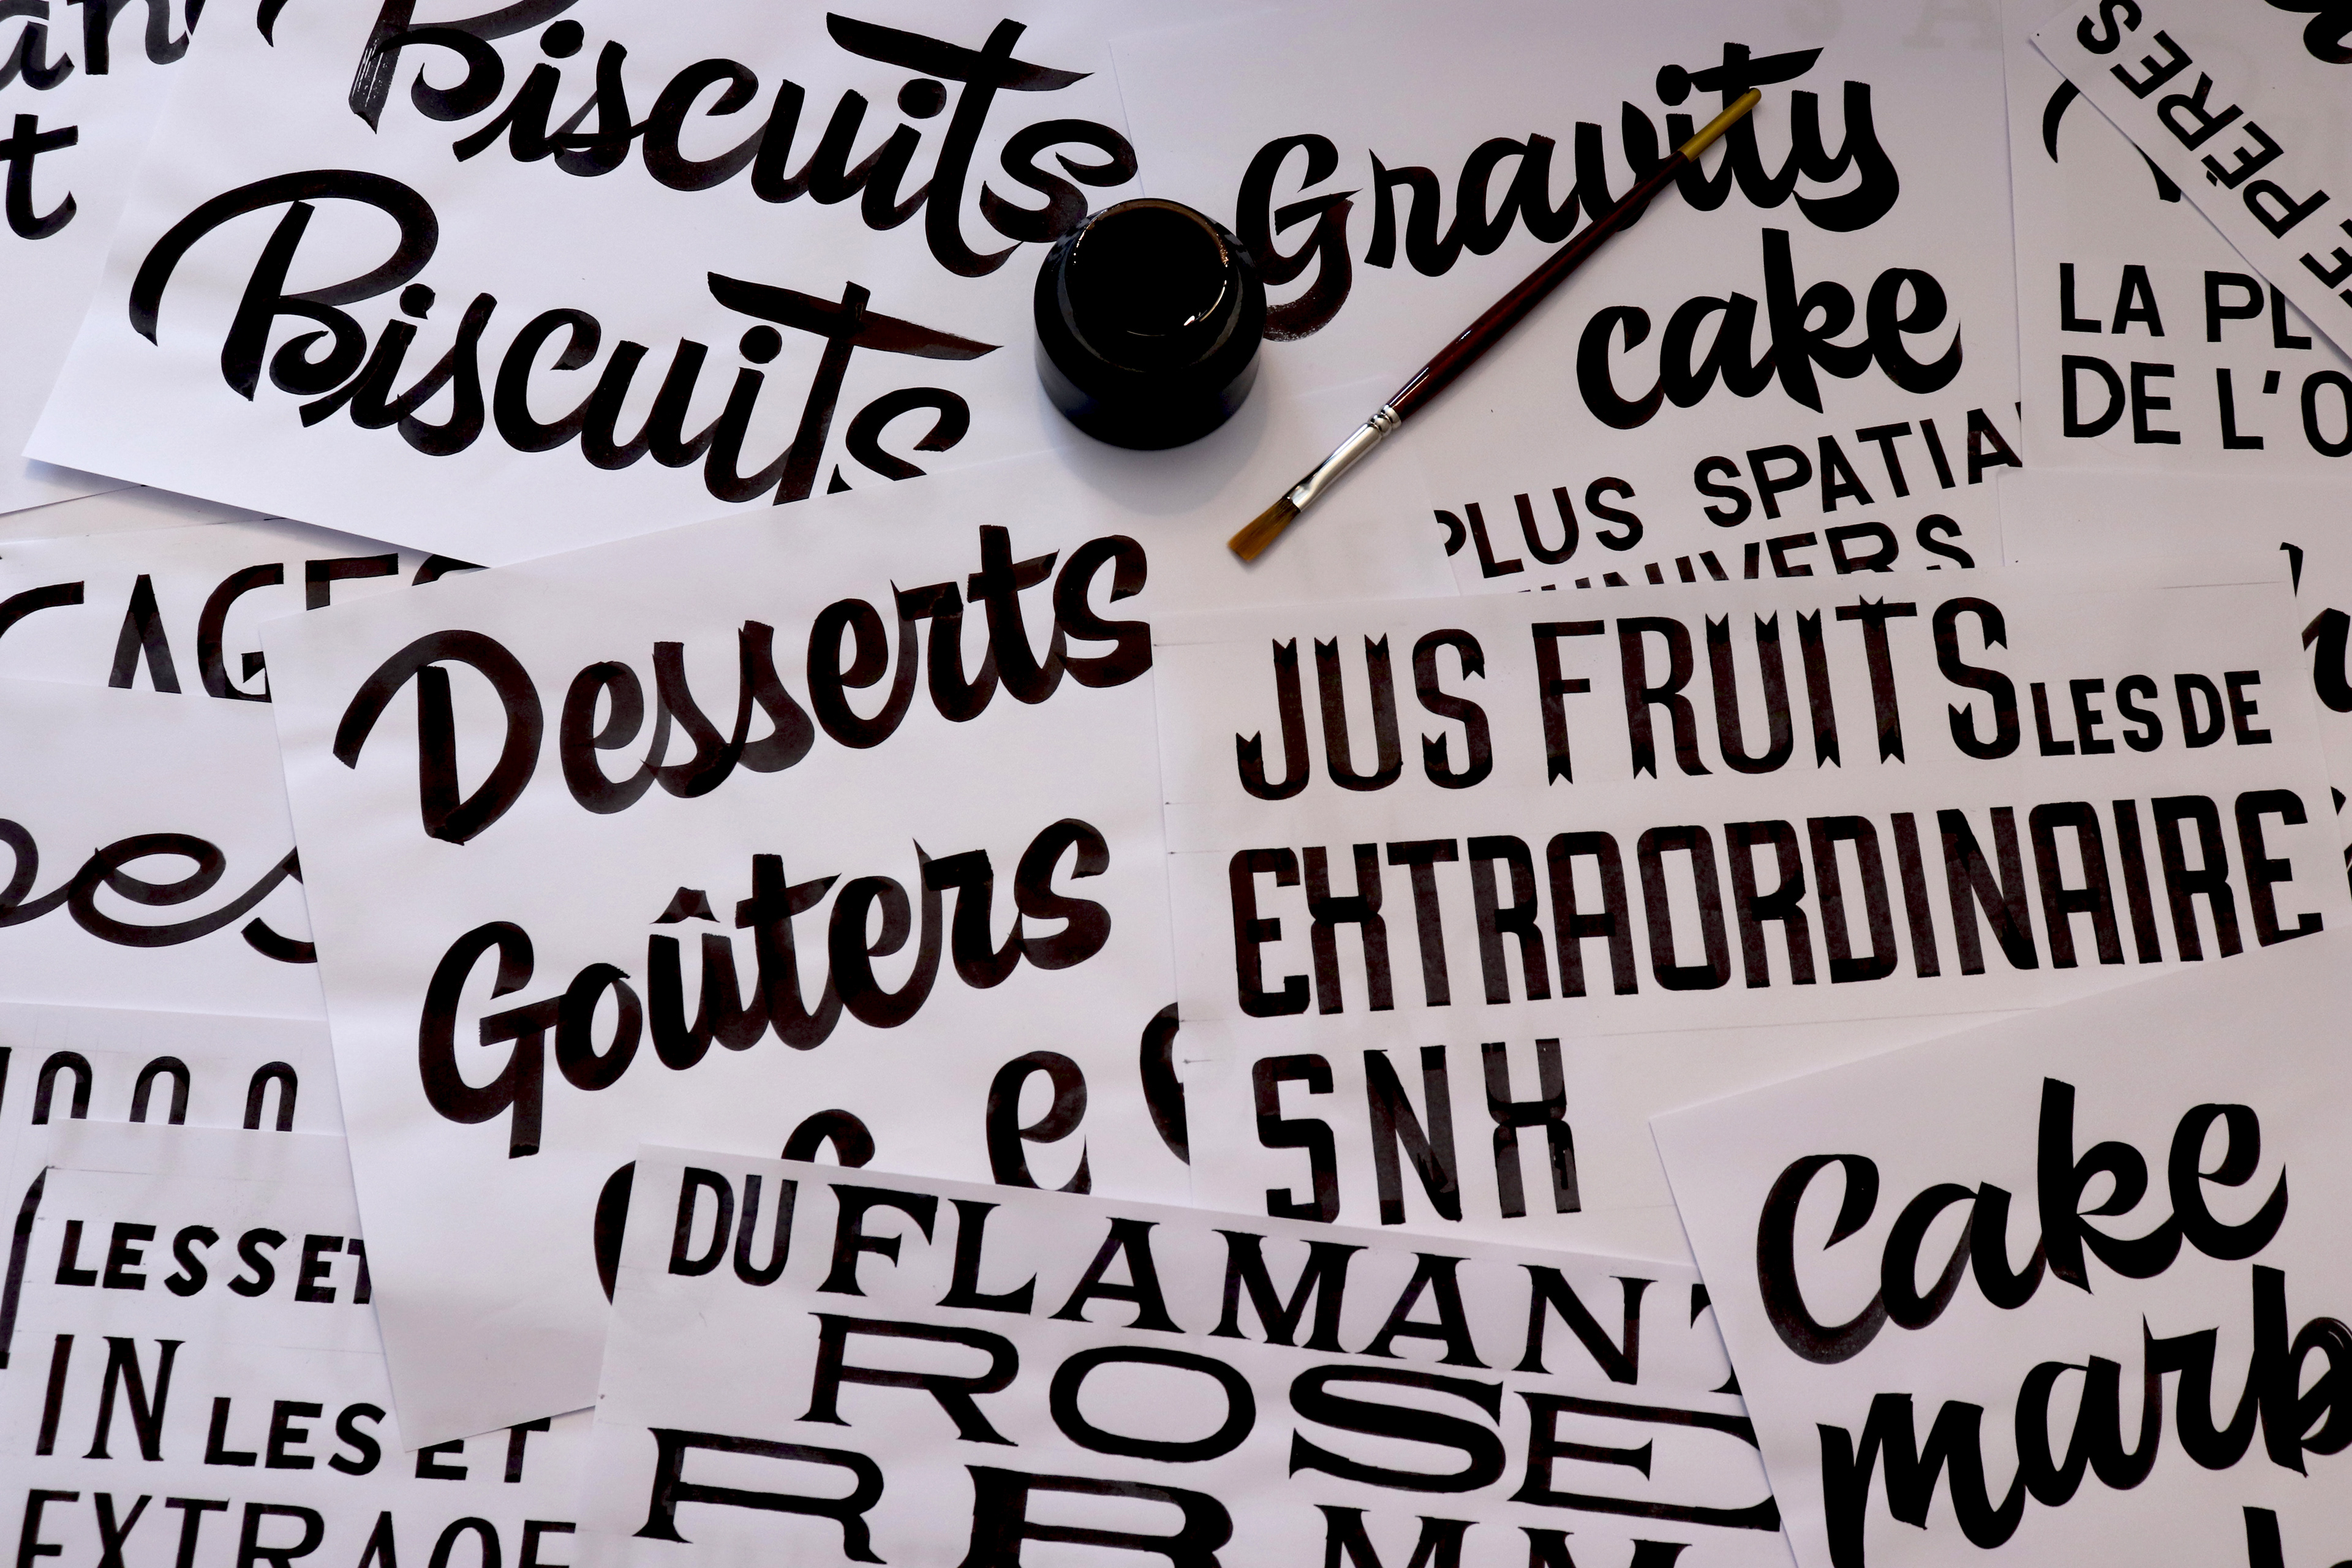 Biscuits
Biscuits
Gravity
cake
PLUS SPATIA
UNIVERS
PÈRES
LA PL
DE L'O
Desserts
Goûters
e
JUS FRUITS LES DE
EXTRAORDINAIRE
SNX
LES SET
IN LES ET
EXTRAOR
DU FLAMANT
ROSE
R B
Cake
marb